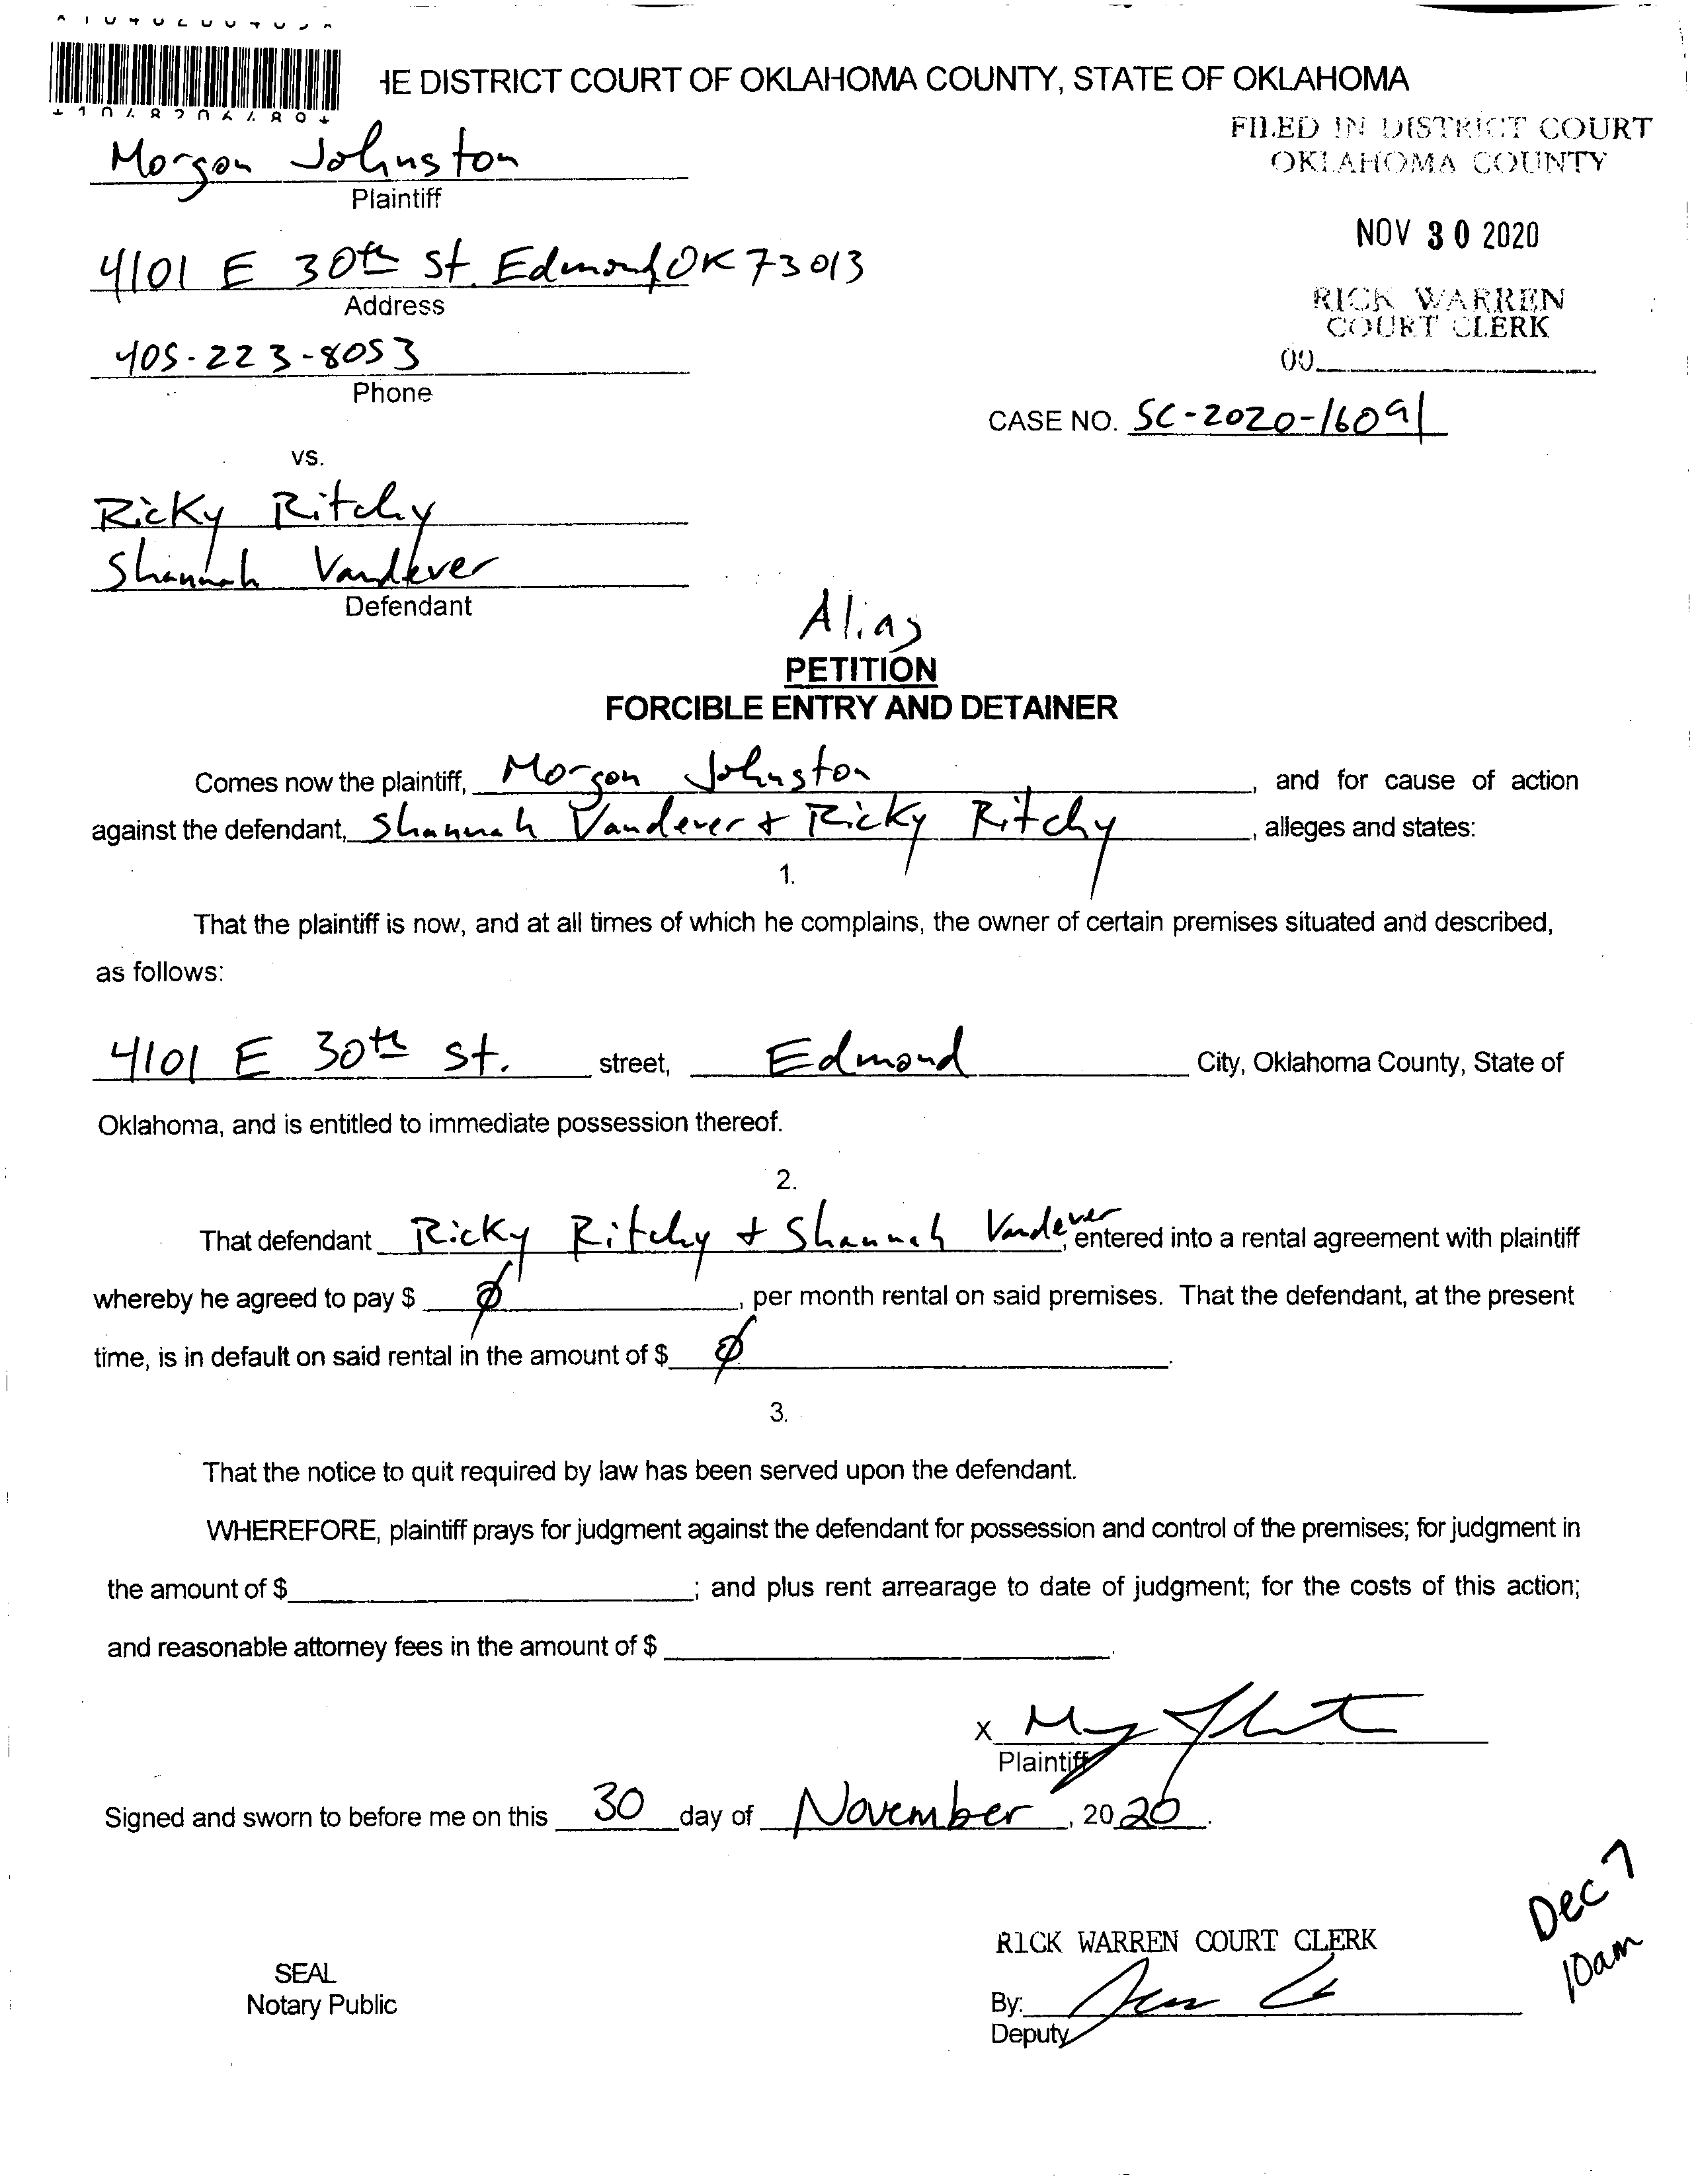 HE DISTRICT COURT OF OKLAHOMA COUNTY, STATE OF OKLAHOMA
FILED IN DISTRICT COURT
OKLAHOMA COUNTY
Morgan Johnston
Plaintiff
NOV 30 2020
4101 E 30th St. Edmond, OK 73013
Address
RICK WARREN
COURT CLERK
405-223-8053
Phone
CASE NO. SC-2020-16091
vs.
Ricky Ritchy
Shannah Vandever
Defendant
Alias
PETITION
FORCIBLE ENTRY AND DETAINER
Comes now the plaintiff, Morgan Johnston, and for cause of action
against the defendant, Shannah Vandever + Ricky Ritchy, alleges and states:
1.
That the plaintiff is now, and at all times of which he complains, the owner of certain premises situated and described,
as follows:
4101 E 30th St. street, Edmond City, Oklahoma County, State of
Oklahoma, and is entitled to immediate possession thereof.
2.
That defendant Ricky Ritchy + Shannah Vandever, entered into a rental agreement with plaintiff
whereby he agreed to pay $ Ø, per month rental on said premises. That the defendant, at the present
time, is in default on said rental in the amount of $ Ø.
3.
That the notice to quit required by law has been served upon the defendant.
WHEREFORE, plaintiff prays for judgment against the defendant for possession and control of the premises; for judgment in
the amount of $ ; and plus rent arrearage to date of judgment; for the costs of this action;
and reasonable attorney fees in the amount of $ .
X
Plaintiff
Signed and sworn to before me on this 30 day of November, 2020.
Dec 7
10am
RICK WARREN COURT CLERK
SEAL
Notary Public
By:
Deputy